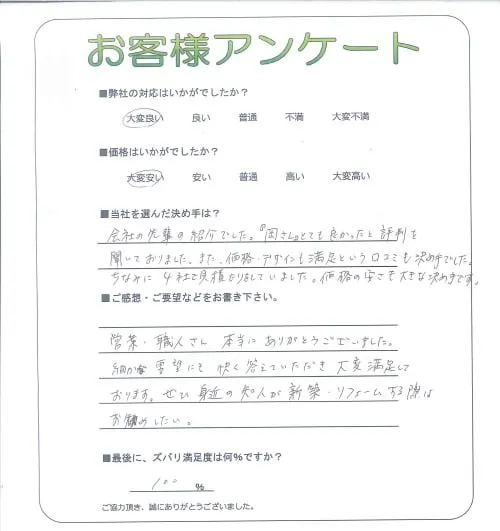 お客様アンケート
■弊社の対応はいかがでしたか？
大変良い 良い 普通 不満 大変不満
■価格はいかがでしたか？
大変安い 安い 普通 高い 大変高い
■当社を選んだ決め手は？
会社の先輩の紹介でした。『岡さん』とても良かったと評判を
聞いておりました。また、価格・デザインも満足という口コミも決め手でした。
ちなみに4社で見積かりをしていました。価格の安さも大きな決め手です。
■ご感想・ご要望などをお書き下さい。
営業・職人さん 本当にありがとうございました。
細かな要望にも快く答えていただき大変満足して
おります。ぜひ身近の知人が新築・リフォームする際は
お勧めしたい。
■最後に、ズバリ満足度は何%ですか？
100 %
ご協力頂き、誠にありがとうございました。